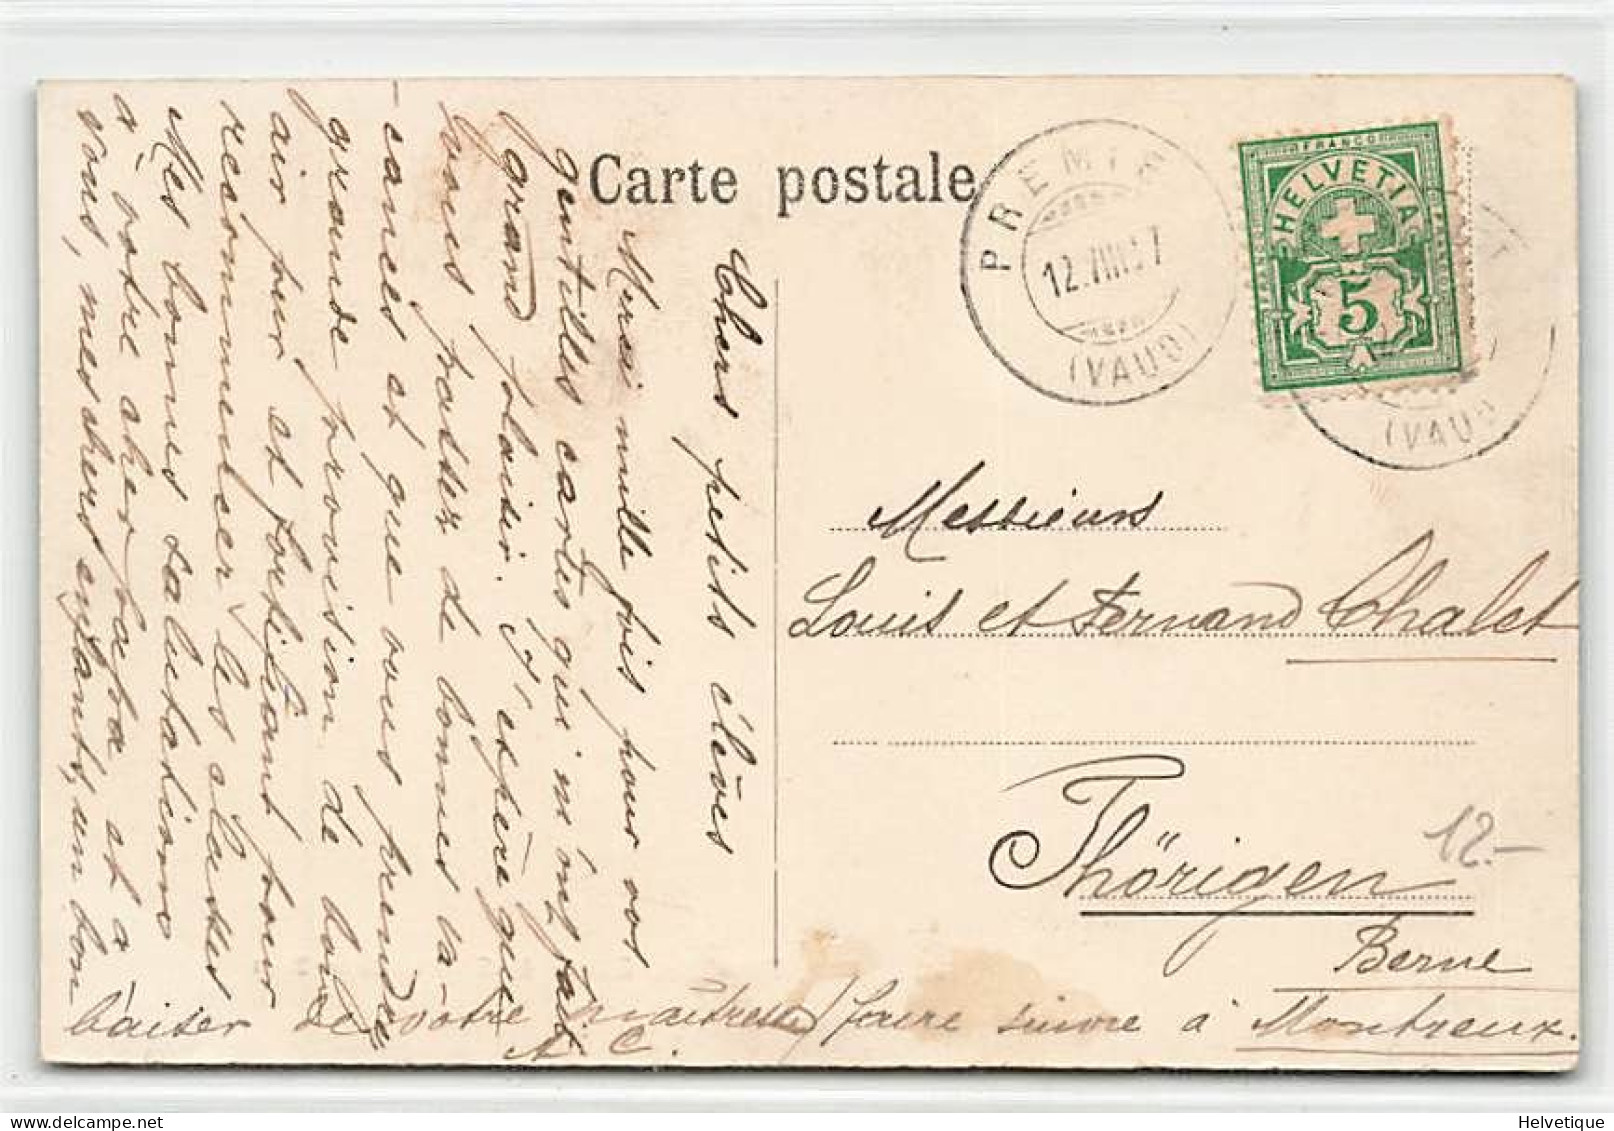 Carte postale
PREMI
12.VIII.07
(VAUD)
FRANCO
HELVETIA
5
(VAUD
Messieurs
Louis et Fernand Chalet
Thörigen
Berne
12.-
faire suivre à Montreux.
Chers petits élèves
Merci mille fois pour vos
gentilles cartes qui m'ont fait
grand plaisir. J'espère que
vous passez de bonnes va-
-cances et que vous prendrez
grande provision de bon
air pur et fortifiant pour
recommencer les classes
Mes bonnes salutations
à votre cher papa et à
vous, mes chers enfants, un bon
baiser de votre maîtresse
A. C.
Helvetique